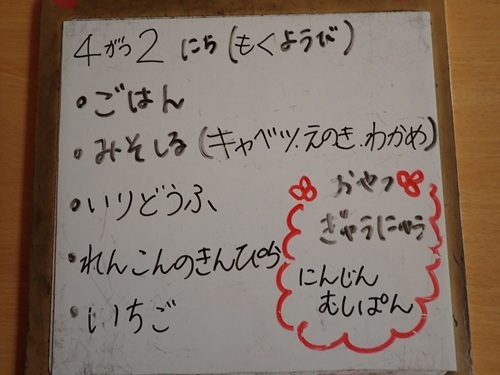 4がつ2にち(もくようび)
・ごはん
・みそしる(キャベツ.えのき.わかめ)
・いりどうふ
・れんこんのきんぴら
・いちご
おやつ
ぎゅうにゅう
にんじん
むしぱん